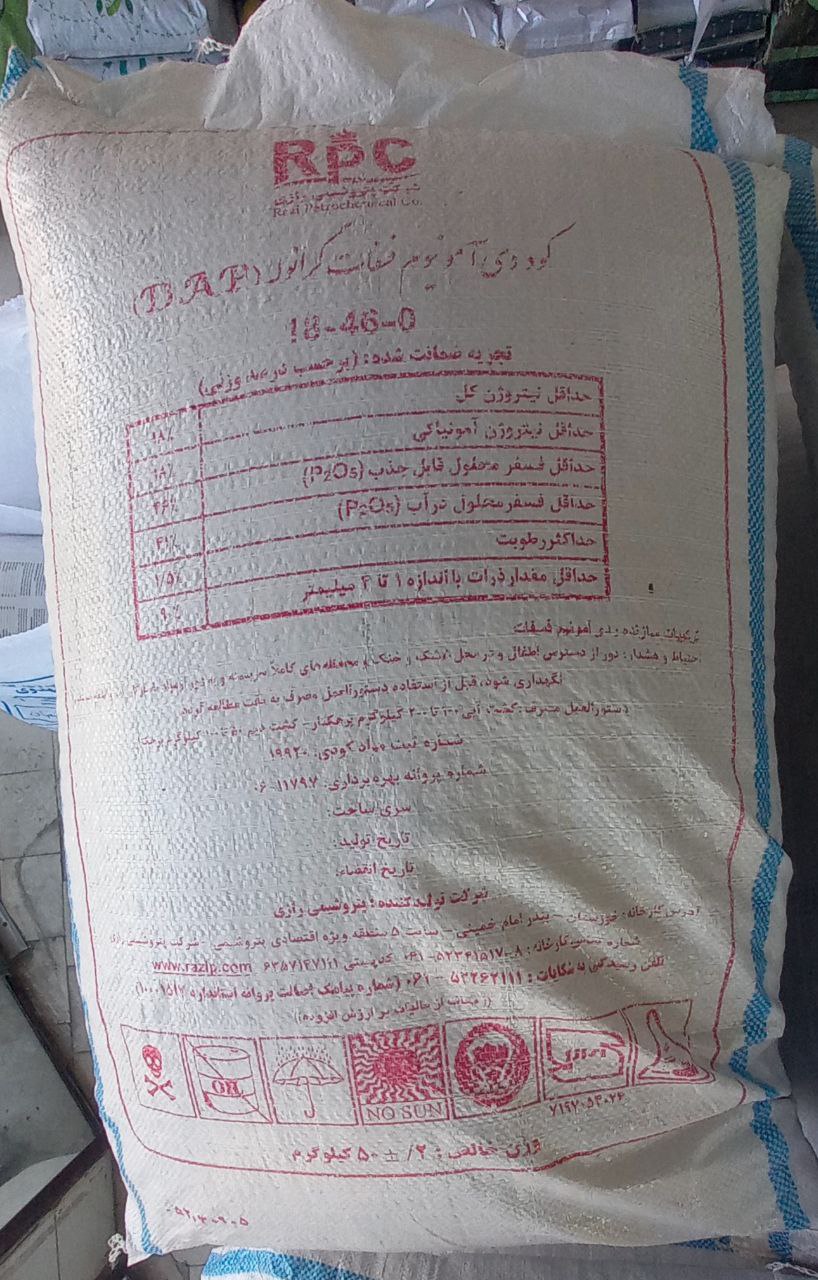 RPC
شرکت پتروشیمی رازی
Razi Petrochemical Co.
کود دی آمونیوم فسفات گرانول (DAP)
18-46-0
تجزیه ضمانت شده: (برحسب درصد وزنی)
حداقل نیتروژن کل ۱۸٪
حداقل نیتروژن آمونیاکی ۱۸٪
حداقل فسفر محلول قابل جذب (P2O5) ۴۶٪
حداقل فسفر محلول در آب (P2O5) ۴۱٪
حداکثر رطوبت ۱/۵٪
حداقل مقدار ذرات با اندازه ۱ تا ۴ میلیمتر ۹۰٪
ترکیبات سازنده: دی آمونیم فسفات
احتیاط و هشدار: دور از دسترس اطفال و در محل خشک و خنک و محفظه های کاملاً سربسته و به دور از مواد
نگهداری شود، قبل از استفاده دستورالعمل مصرف به دقت مطالعه گردد
دستورالعمل مصرف: کشت آبی ۱۰۰ تا ۲۰۰ کیلوگرم در هکتار - کشت دیم ۵۰ تا ۱۰۰ کیلوگرم در هکتار
شماره ثبت مواد کودی: ۱۹۹۲۰
شماره پروانه بهره برداری: ۶۰۱۱۷۹۷
سری ساخت:
تاریخ تولید:
تاریخ انقضاء:
شرکت تولیدکننده: پتروشیمی رازی
آدرس کارخانه: خوزستان - بندر امام خمینی - سایت ۵ منطقه ویژه اقتصادی پتروشیمی - شرکت پتروشیمی رازی
شماره تماس کارخانه: ۸-۰۶۱-۵۲۲۶۱۵۱۷ کدپستی ۶۳۵۷۱۴۷۱۶۱ www.razip.com
تلفن رسیدگی به شکایات: ۵۲۲۶۲۱۱۱-۰۶۱ (شماره پیامک اصالت پروانه استاندارد ۱۰۰۰۱۵۱۷)
((معاف از مالیات بر ارزش افزوده))
OR
NO SUN
۷۱۹۷۰۵۴۰۲۶
وزن خالص: ۲٪ ± ۵۰ کیلوگرم